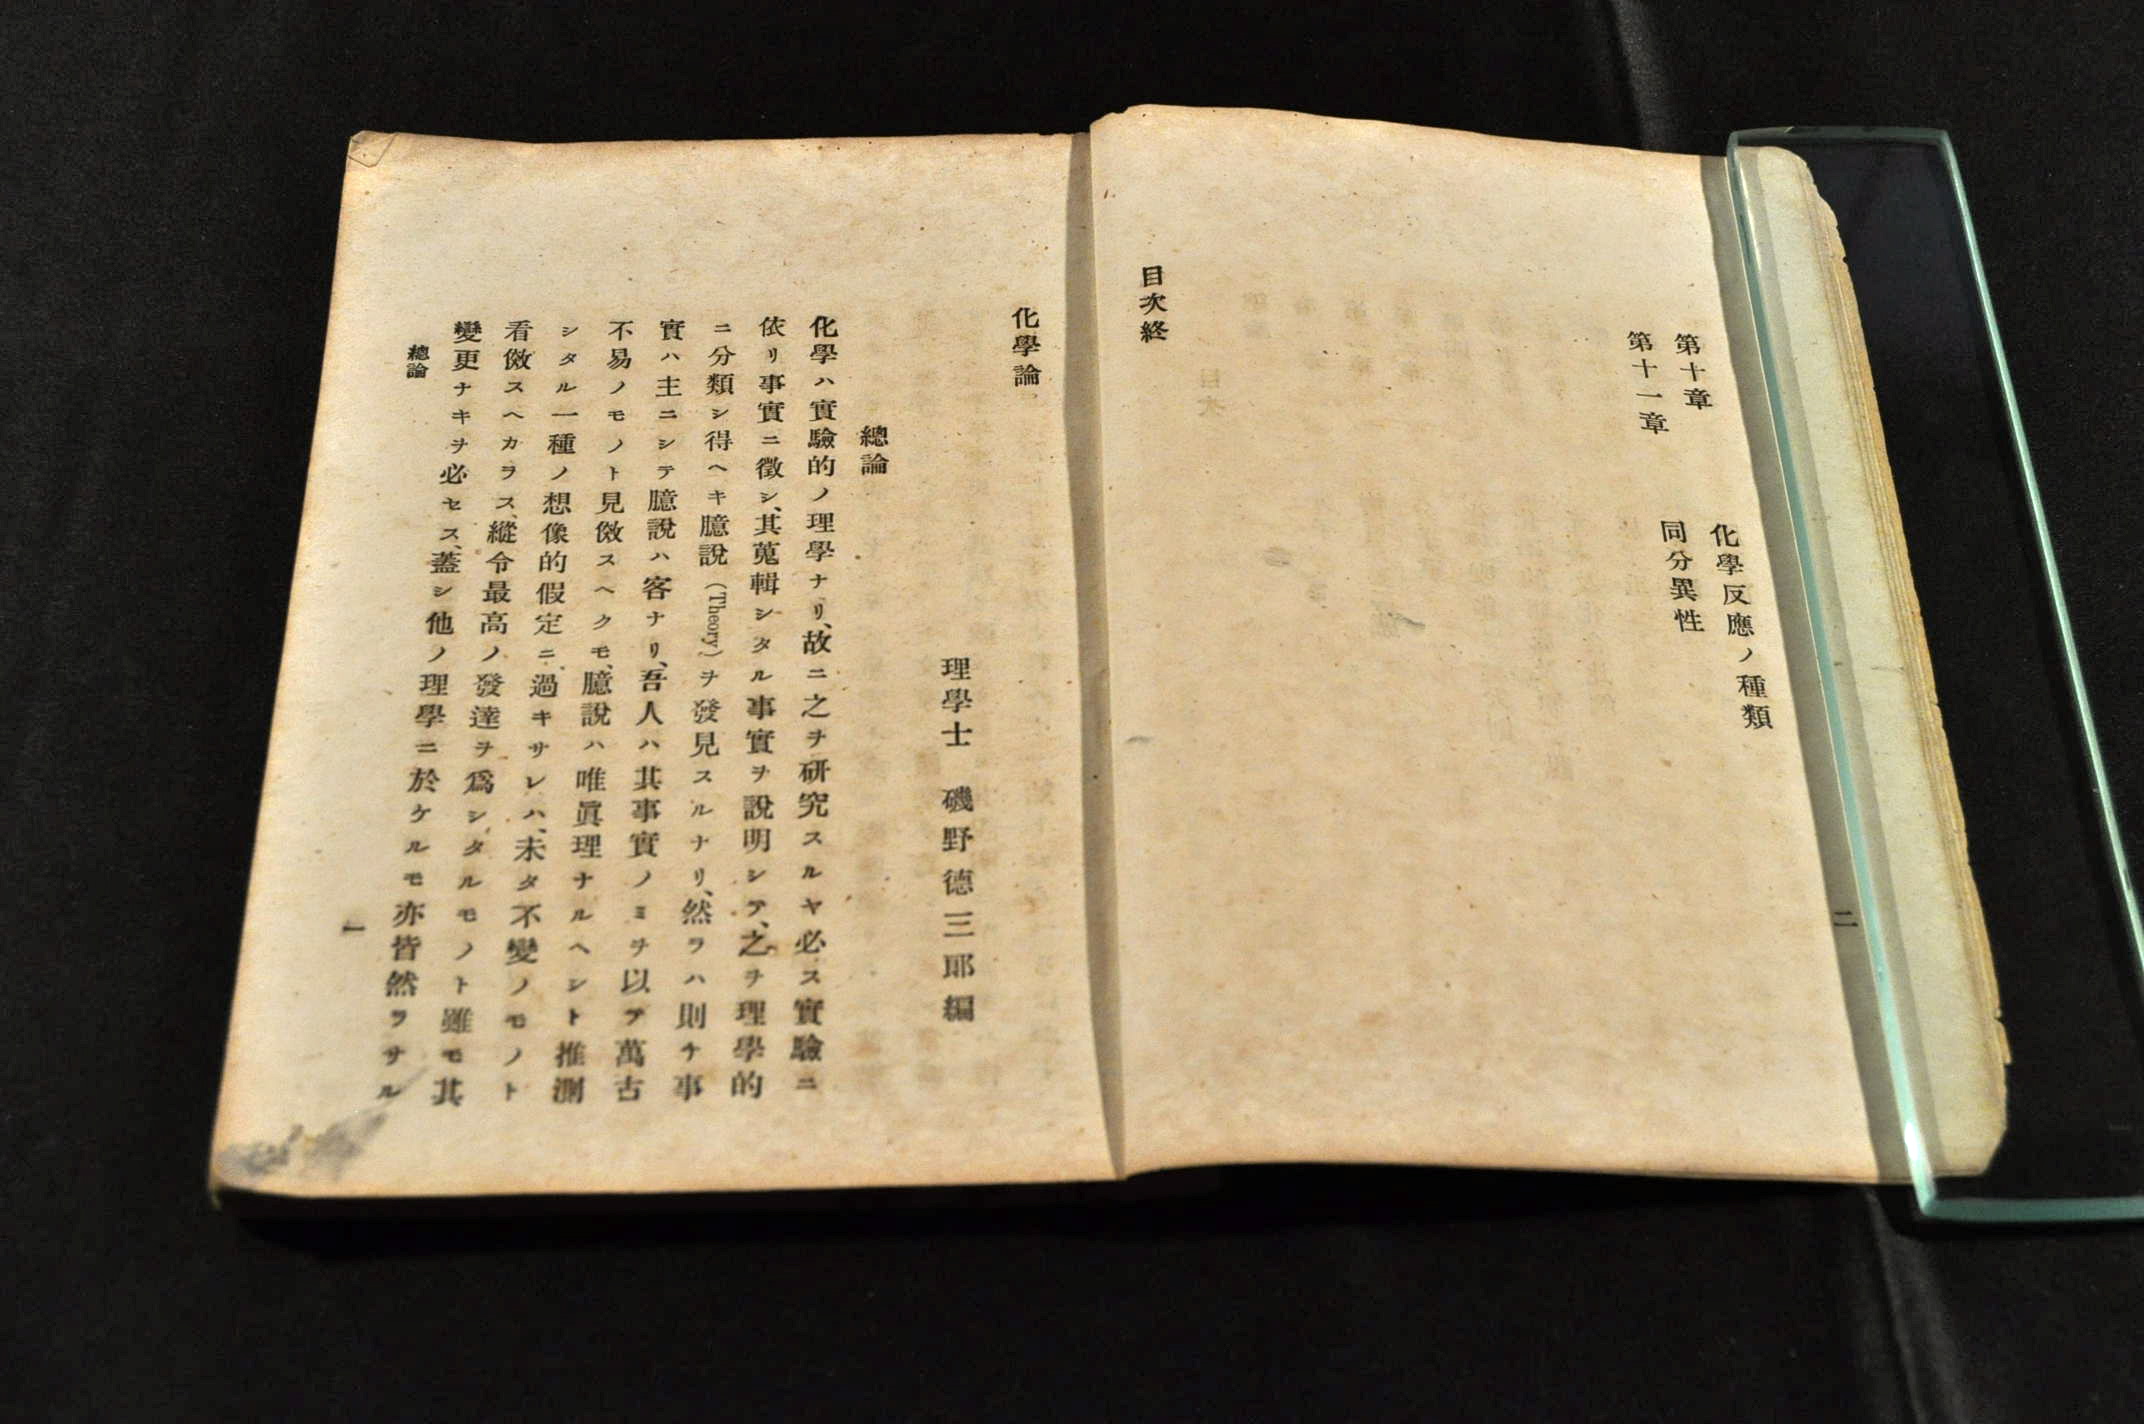 第十章 化學反應ノ種類
第十一章 同分異性
目次終
二
化學論
理學士 磯野德三郎編
總論
化學ハ實驗的ノ理學ナリ、故ニ之ヲ研究スルヤ必ス實驗ニ
依リ事實ニ徵シ、其蒐輯シタル事實ヲ說明シテ、之ヲ理學的
ニ分類シ得ヘキ臆說(Theory)ヲ發見スルナリ、然ラハ則チ事
實ハ主ニシテ臆說ハ客ナリ、吾人ハ其事實ノミヲ以テ萬古
不易ノモノト見做スヘクモ、臆說ハ唯眞理ナルヘシト推測
シタル一種ノ想像的假定ニ、過キサレハ、未タ不變ノモノト
看做スヘカラス、縱令最高ノ發達ヲ爲シタルモノト雖モ其
變更ナキヲ必セス、蓋シ他ノ理學ニ於ケルモ亦皆然ラサル
總論
一